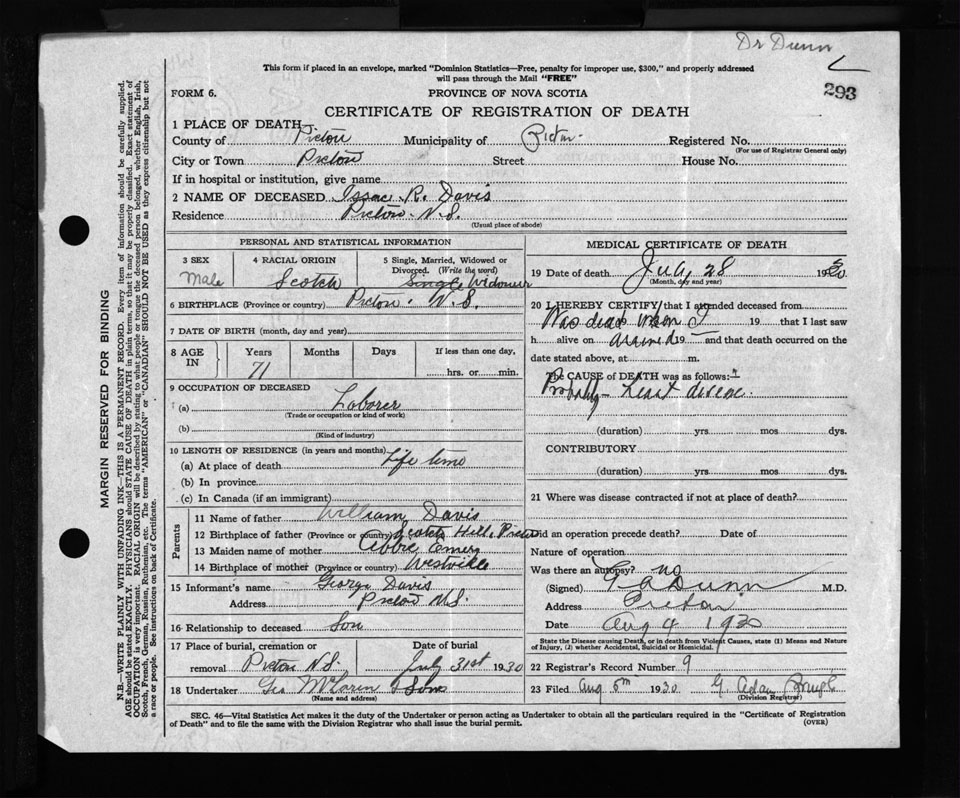 Dr Dunn
This form if placed in an envelope, marked "Dominion Statistics—Free, penalty for improper use, $300," and properly addressed
will pass through the Mail "FREE"
FORM 6.
PROVINCE OF NOVA SCOTIA
293
CERTIFICATE OF REGISTRATION OF DEATH
1 PLACE OF DEATH
County of Pictou Municipality of Pictou Registered No.
(For use of Registrar General only)
City or Town Pictou Street House No.
If in hospital or institution, give name
2 NAME OF DECEASED Issac R. Davis
Residence Pictou N.S.
(Usual place of abode)
PERSONAL AND STATISTICAL INFORMATION
3 SEX 4 RACIAL ORIGIN 5 Single, Married, Widowed or
Divorced. (Write the word)
Male Scotch Single Widower
6 BIRTHPLACE (Province or country) Pictou N.S.
7 DATE OF BIRTH (month, day and year)
8 AGE IN Years Months Days If less than one day,
71 hrs. or min.
9 OCCUPATION OF DECEASED
(a) Laborer
(Trade or occupation or kind of work)
(b)
(Kind of industry)
10 LENGTH OF RESIDENCE (in years and months)
(a) At place of death Life time
(b) In province
(c) In Canada (if an immigrant)
Parents
11 Name of father William Davis
12 Birthplace of father (Province or country) Scotch Hill, Pictou
13 Maiden name of mother Abbie
14 Birthplace of mother (Province or country) Westville
15 Informant's name George Davis
Address Pictou N.S.
16 Relationship to deceased Son
17 Place of burial, cremation or Date of burial
removal Pictou N.S. July 31st 1930
18 Undertaker Geo McLaren & Sons
(Name and address)
MEDICAL CERTIFICATE OF DEATH
19 Date of death July 28 1930
(Month, day and year)
20 I HEREBY CERTIFY that I attended deceased from
Was dead when I 19 that I last saw
h alive on arrived 19 and that death occurred on the
date stated above, at m.
The CAUSE of DEATH was as follows:
Probably Heart disease.
(duration) yrs. mos dys.
CONTRIBUTORY
(duration) yrs. mos. dys.
21 Where was disease contracted if not at place of death?
Did an operation precede death? Date of
Nature of operation
Was there an autopsy? no
(Signed) G A Dunn M.D.
Address Pictou
Date Aug 4 1930
State the Disease causing Death, or in death from Violent Causes, state (1) Means and Nature
of Injury, (2) whether Accidental, Suicidal or Homicidal.
22 Registrar's Record Number 9
23 Filed Aug 5th 1930 G. Adam
(Division Registrar)
SEC. 46—Vital Statistics Act makes it the duty of the Undertaker or person acting as Undertaker to obtain all the particulars required in the "Certificate of Registration
of Death" and to file the same with the Division Registrar who shall issue the burial permit.
(OVER)
MARGIN RESERVED FOR BINDING
N.B.—WRITE PLAINLY WITH UNFADING INK—THIS IS A PERMANENT RECORD. Every item of information should be carefully supplied.
AGE should be stated EXACTLY. PHYSICIANS should STATE CAUSE OF DEATH in plain terms, so that it may be properly classified. Exact statement of
OCCUPATION is very important. RACIAL ORIGIN will be described by stating to what people or tongue the deceased person belonged, whether English, Irish,
Scotch, French, German, Russian, Ruthenian, etc. The terms "AMERICAN" or "CANADIAN" SHOULD NOT BE USED as they express citizenship but not
a race or people. See instructions on back of Certificate.